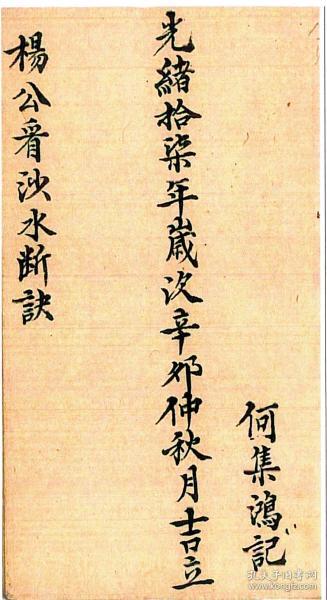 何集鴻記
光緒拾柒年歲次辛卯仲秋月吉立
楊公看沙水断訣
孔夫子旧书网
www.kongfz.com